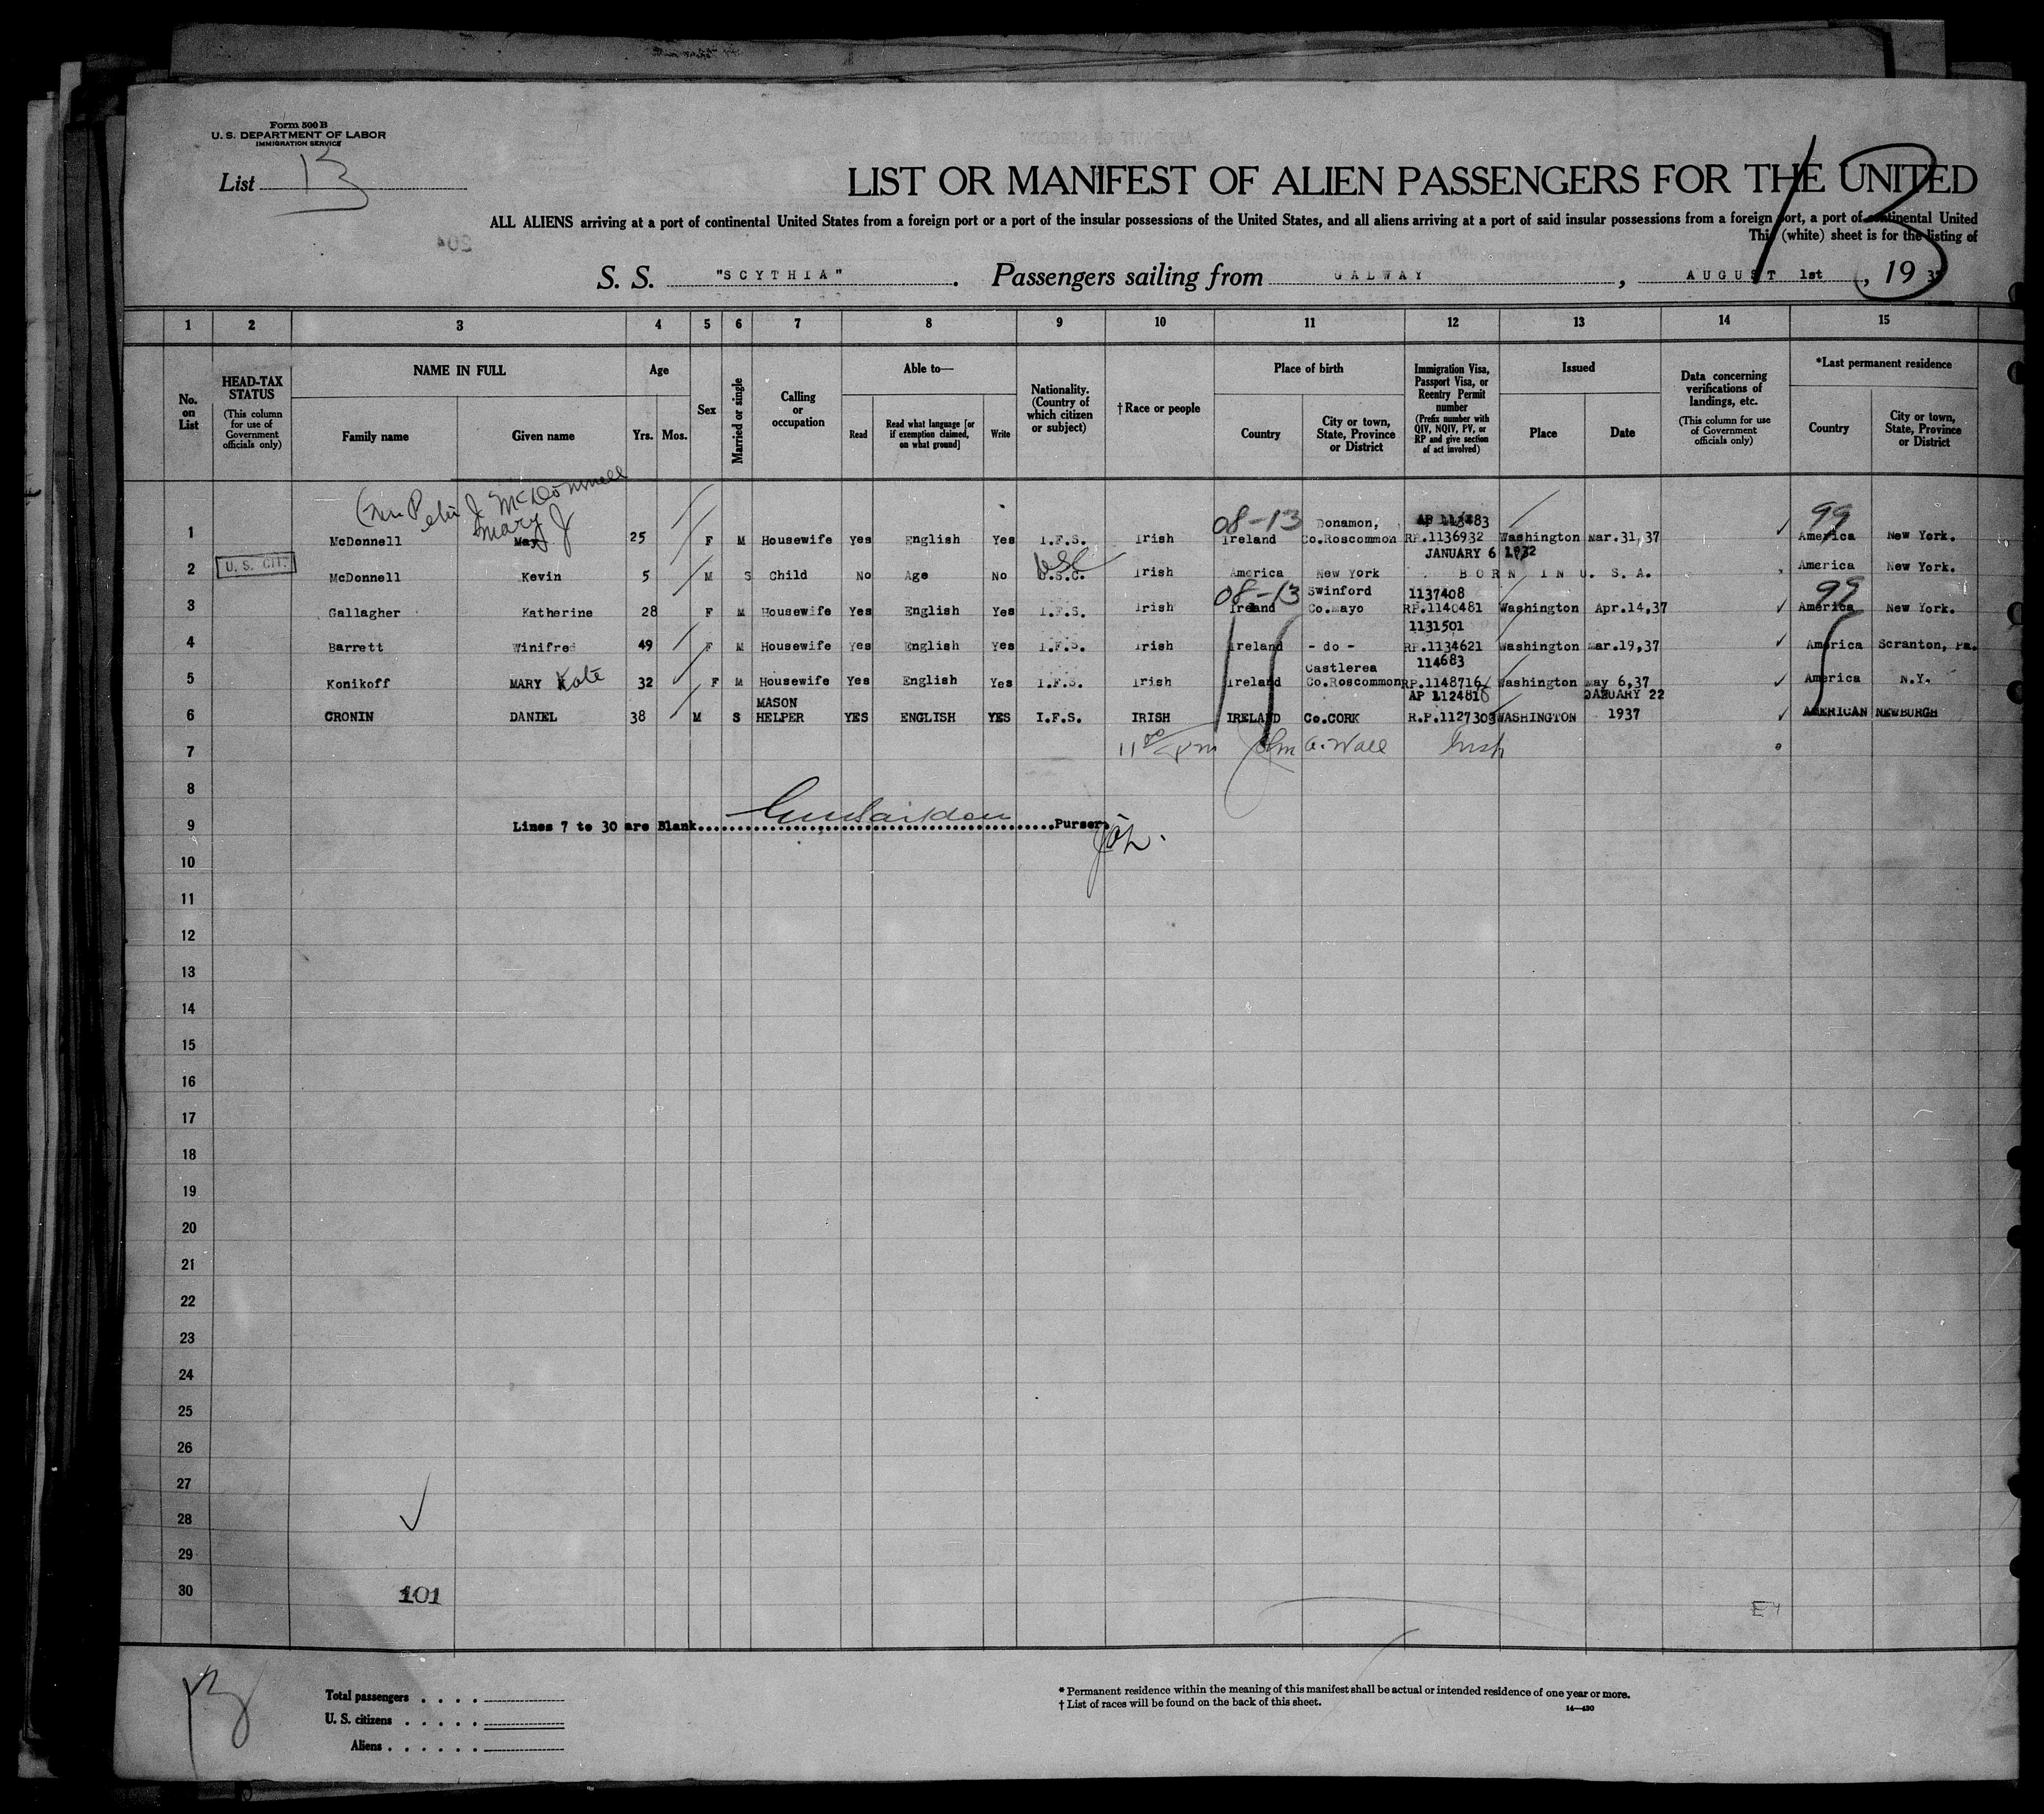 Form 500 B
U. S. DEPARTMENT OF LABOR
IMMIGRATION SERVICE
List 13
LIST OR MANIFEST OF ALIEN PASSENGERS FOR THE UNITED
13
ALL ALIENS arriving at a port of continental United States from a foreign port or a port of the insular possessions of the United States, and all aliens arriving at a port of said insular possessions from a foreign port, a port of continental United
This (white) sheet is for the listing of
204
S. S. "SCYTHIA". Passengers sailing from GALWAY, AUGUST 1st, 19 37
1 2 3 4 5 6 7 8 9 10 11 12 13 14 15
No. on List
HEAD-TAX STATUS
(This column for use of Government officials only)
NAME IN FULL
Family name
Given name
Age
Yrs. Mos.
Sex
Married or single
Calling or occupation
Able to—
Read
Read what language [or if exemption claimed, on what ground]
Write
Nationality. (Country of which citizen or subject)
† Race or people
Place of birth
Country
City or town, State, Province or District
Immigration Visa, Passport Visa, or Reentry Permit number
(Prefix number with QIV, NQIV, PV, or RP and give section of act involved)
Issued
Place
Date
Data concerning verifications of landings, etc.
(This column for use of Government officials only)
*Last permanent residence
Country
City or town, State, Province or District
Peter J. McDonnell
Mary J
08-13 Donamon, 99
1 McDonnell May 25 F M Housewife Yes English Yes I.F.S. Irish Ireland Co.Roscommon RP.1136932 Washington Mar.31,37 America New York.
JANUARY 6 1932
U. S. CIT. USC
2 McDonnell Kevin 5 M S Child No Age No U.S.C. Irish America New York BORN IN U. S. A. America New York.
08-13 Swinford 1137408 99
3 Gallagher Katherine 28 F M Housewife Yes English Yes I.F.S. Irish Ireland Co.Mayo RP.1140481 Washington Apr.14,37 America New York.
1131501
4 Barrett Winifred 49 F M Housewife Yes English Yes I.F.S. Irish Ireland - do - RP.1134621 Washington Mar.19,37 America Scranton, Pa.
Castlerea 114683
5 Konikoff MARY Kate 32 F M Housewife Yes English Yes I.F.S. Irish Ireland Co.Roscommon RP.1148716 Washington May 6,37 America N.Y.
MASON AP 1124816 JANUARY 22
6 CRONIN DANIEL 38 M S HELPER YES ENGLISH YES I.F.S. IRISH IRELAND Co.CORK R.P.1127309 WASHINGTON 1937 AMERICAN NEWBURGH
7 John A. Wall Insp
8
9 Lines 7 to 30 are Blank Purser.
10
11
12
13
14
15
16
17
18
19
20
21
22
23
24
25
26
27
28
29
30 101
Total passengers
U. S. citizens
Aliens
* Permanent residence within the meaning of this manifest shall be actual or intended residence of one year or more.
† List of races will be found on the back of this sheet.
14—430